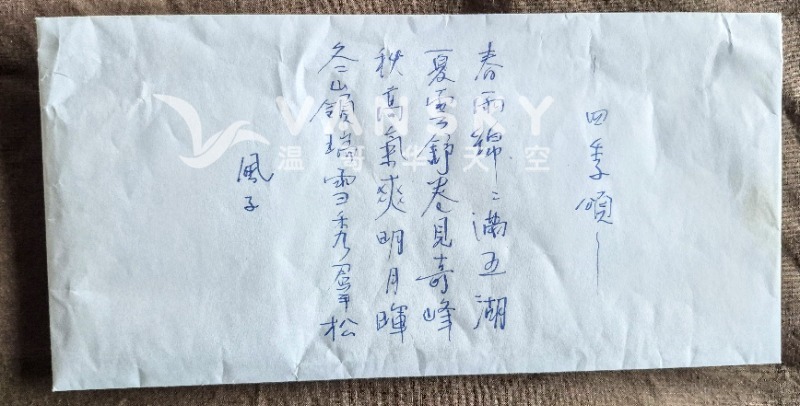 四季頌～
春雨綿〻滿五湖
夏雲舒卷見奇峰
秋高氣爽明月暉
冬山鋪瑞雪秀翠松
風子
VANSKY
温哥华天空